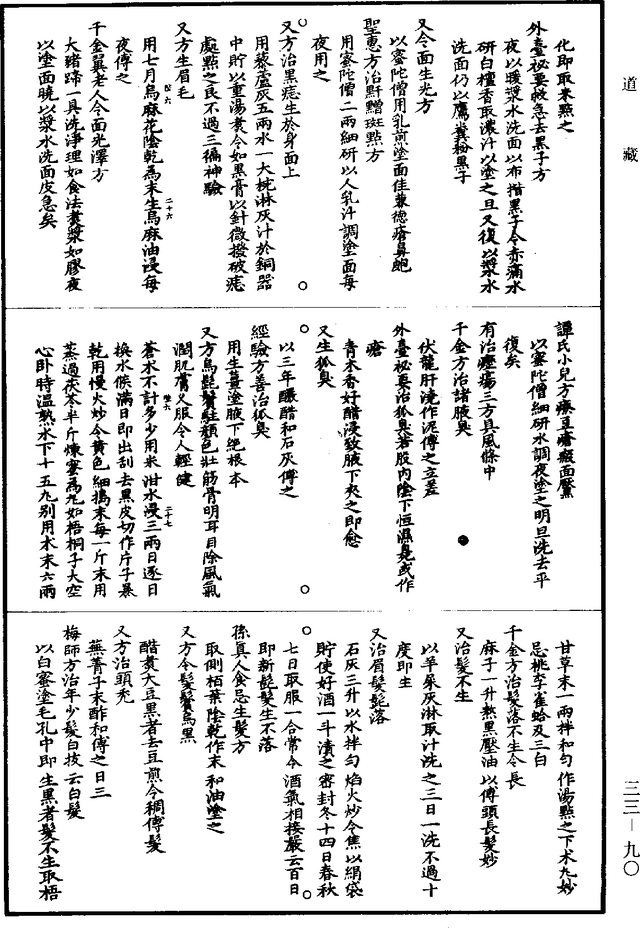 道藏
化即取来㸃之
外臺祕要救急去黑子方
夜以暖漿水洗面以布揩黑子令赤痛水
研白檀香取濃汁以塗之旦又復以漿水
洗面仍以鷹糞粉黑子
又令面生光方
以蜜陀僧用乳煎塗面佳兼德瘡鼻皰
聖惠方治䵟䵳斑㸃方
用蜜陀僧二兩細研以人乳汁調塗面每
夜用之
又方治黑痣生於身面上
用藜蘆灰五兩水一大椀淋灰汁於銅器
中貯以重湯煑令如黑膏以針微撥破痣
處㸃之良不過三徧神驗
又方生眉毛
用七月烏麻花陰乾為末生烏麻油浸每
夜傅之
千金翼老人令面光澤方
大猪蹄一具洗淨理如食法煑漿如膠夜
以塗面曉以漿水洗面皮急矣
譚氏小兒方療豆瘡瘢面黶
以蜜陀僧細研水調夜塗之明旦洗去平
復矣
有治癧瘍三方具風條中
千金方治諸腋臭
伏龍肝澆作泥傅之立差
外臺祕要治狐臭若股内陰下恒濕臭或作
瘡
青木香好醋浸致腋下夾之即愈
又生狐臭
以三年釅醋和石灰傅之
經驗方善治狐臭
用生薑塗腋下絕根本
又方烏髭鬢駐顏色壯筋骨明耳目除風氣
潤肌膚久服令人輕健
蒼朮不計多少用米泔水浸三兩日逐日
換水候滿日即出刮去黑皮切作片子暴
乾用慢火炒令黃色細搗末每一斤末用
蒸過茯苓半斤煉蜜為丸如梧桐子大空
心卧時温熟水下十五丸别用朮末六兩
甘草末一兩拌和勻作湯㸃之下朮丸妙
忌桃李雀蛤及三白
千金方治髮落不生令長
麻子一升熬黑壓油以傅頭長髮妙
又治髮不生
以羊屎灰淋取汁洗之三日一洗不過十
度即生
又治眉髮髭落
石灰三升以水拌勻焰火炒令焦以絹袋
貯使好酒一斗漬之密封冬十四日春秋
七日取服一合常令酒氣相接嚴云百日
即新髭髮生不落
孫真人食忌生髮方
取側柏葉陰乾作末和油塗之
又方令髮鬢烏黑
醋煑大豆黑者去豆煎令稠傅髮
又方治頭秃
蕪菁子末酢和傅之日三
梅師方治年少髮白拔去白髮
以白蜜塗毛孔中即生黑者髮不生取梧
三三－九〇